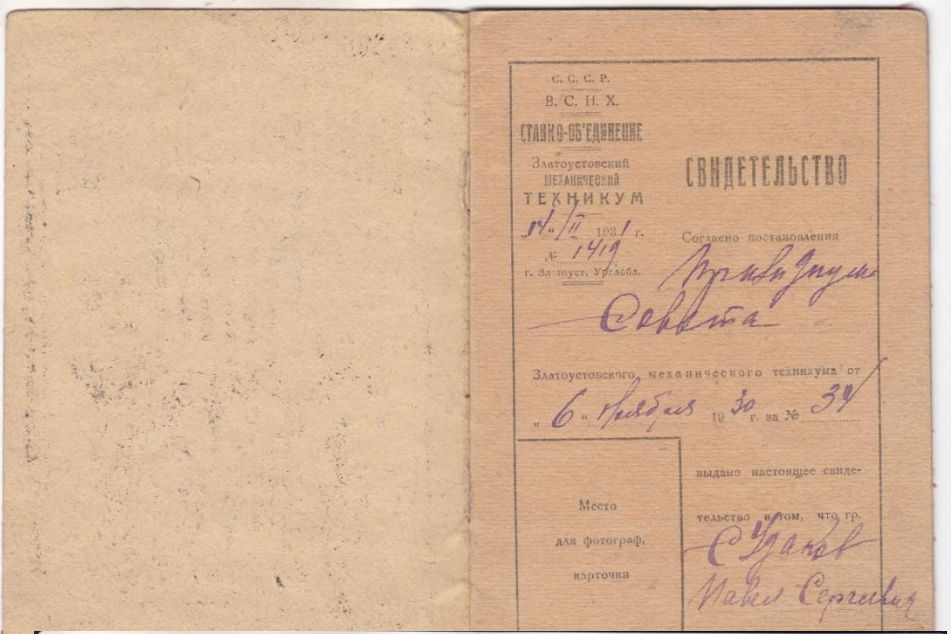 С. С. С. Р.
В. С. Н. Х.
СТАНКО-ОБ'ЕДИНЕНИЕ
Златоустовский
МЕХАНИЧЕСКИЙ
ТЕХНИКУМ
„14“ /II 1931 г.
№ 1419
г. Златоуст, Ур. обл.
СВИДЕТЕЛЬСТВО
Согласно постановления
Президиума
Совета
Златоустовского механического техникума от
„6“ ноября 1930 г. за № 34
выдано настоящее свиде-
тельство в том, что гр.
Павел Сергеевич
Место
для фотограф.
карточки